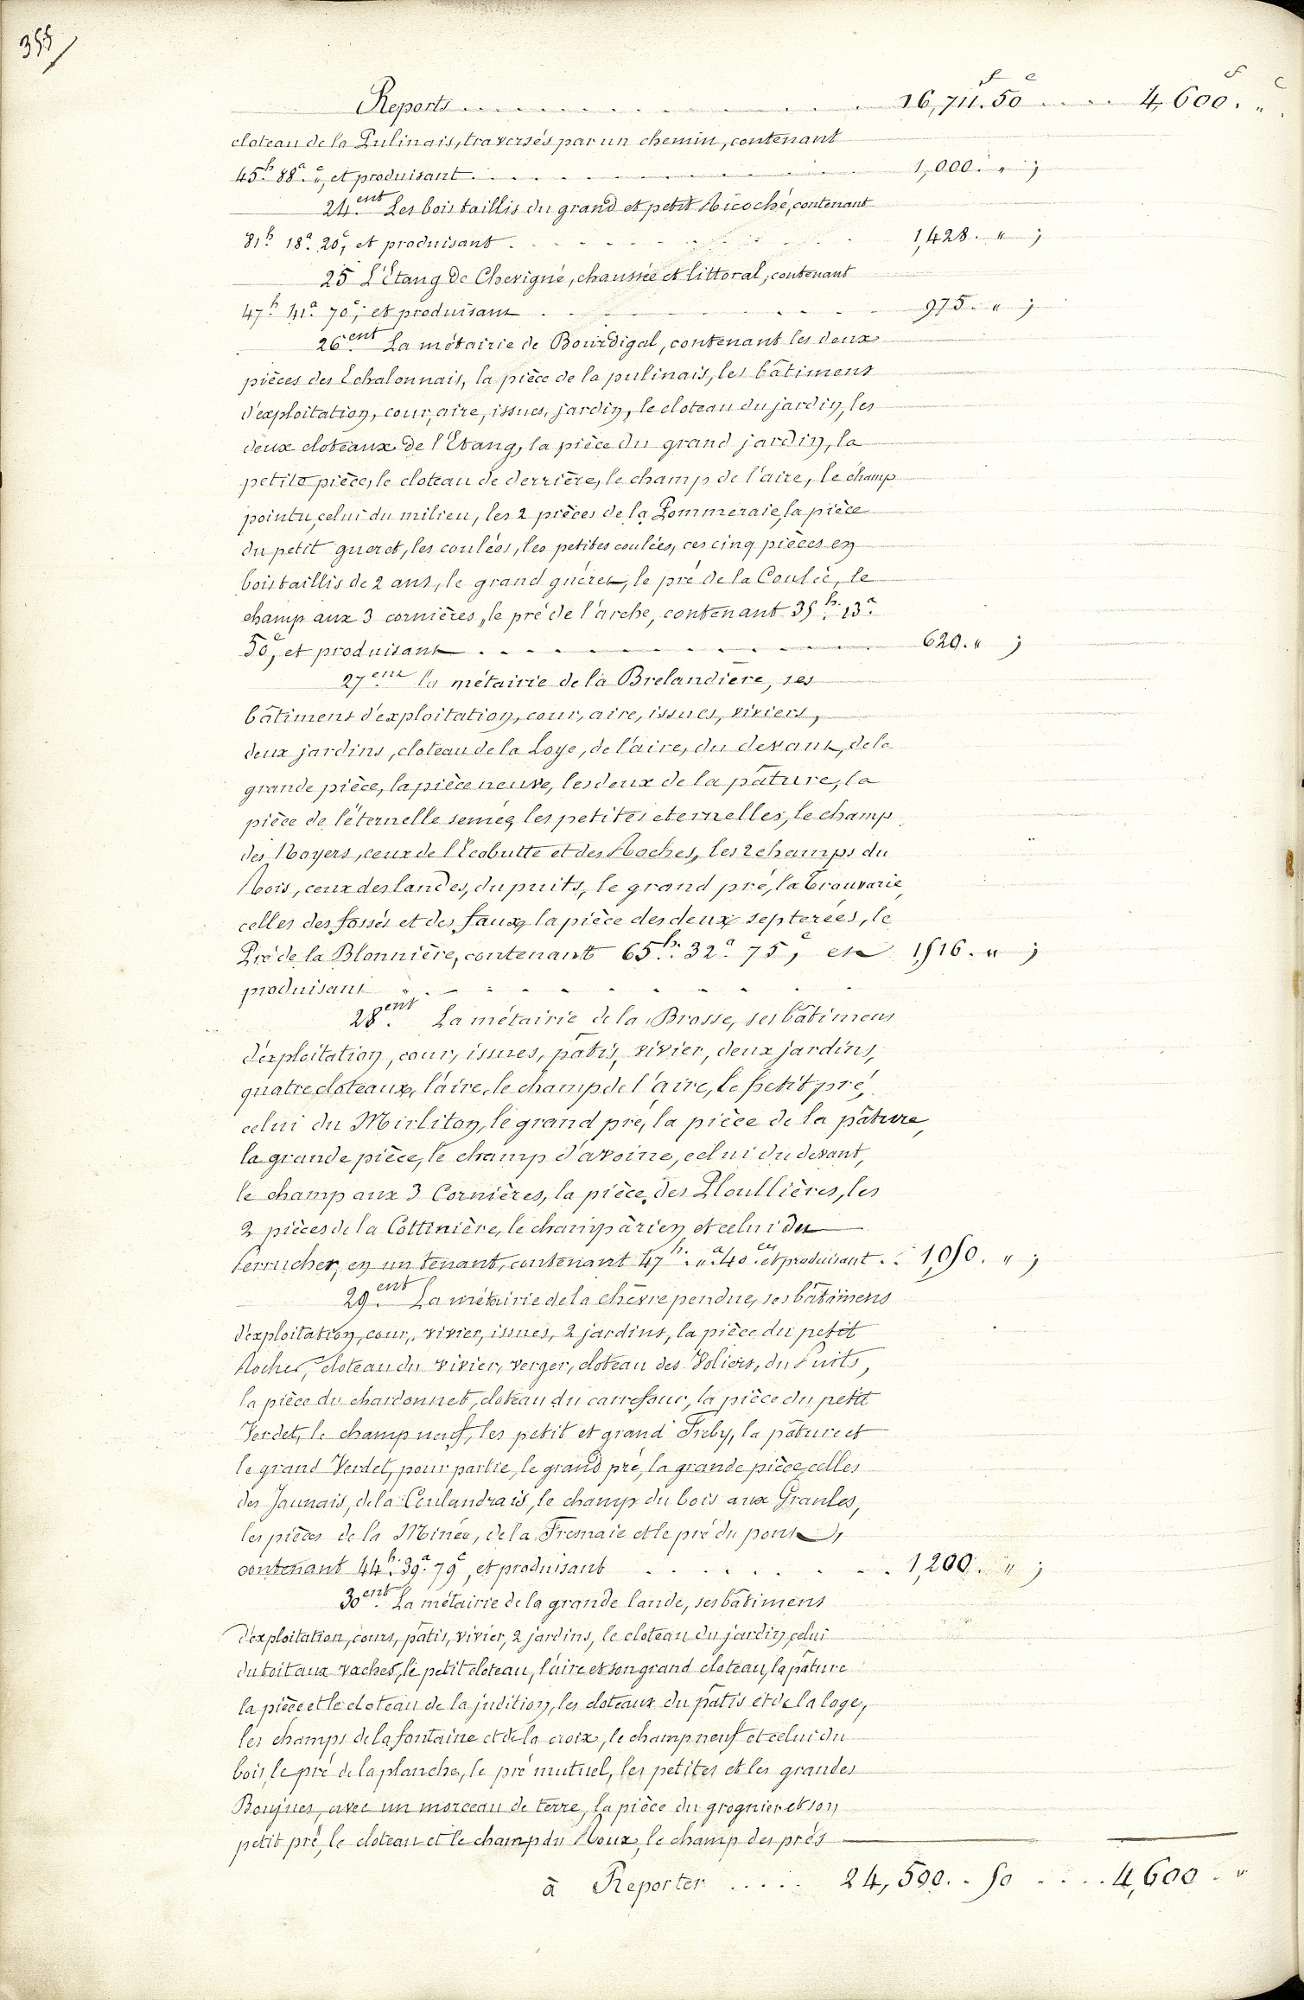 355
Reports . . . . . . . . . . . . 16,711.f 50c . . . . 4,600.f " c
cloteau de la Pulinais, traversés par un chemin, contenant
45h. 88a. "c, et produisant . . . . . . . . . . . . 1,000. " ;
24.ent Les bois taillis du grand et petit Ricoché, contenant
81h. 18a. 20c, et produisant . . . . . . . . . . 1,428. " ;
25 L'Étang de Chevigné, chaussée et littoral, contenant
47h. 41a. 70c; et produisant . . . . . . . . . . 975. " ;
26.ent La métairie de Bourdigal, contenant les deux
pièces des Echalonnais, la pièce de la pulinais, les bâtimens
d'exploitation, cour, aire, issues, jardin, le cloteau du jardin, les
deux cloteaux de l'Etang, la pièce du grand jardin, la
petite pièce, le cloteau de derrière, le champ de l'aire, le champ
pointu, celui du milieu, les 2 pièces de la Pommeraie, la pièce
du petit gueret, les coulées, les petites coulées, ces cinq pièces en
bois taillis de 2 ans, le grand guéret, le pré de la Coulée, le
champ aux 3 cornières, le pré de l'arche, contenant 35h. 13a.
50c, et produisant . . . . . . . . . . . . 620. " ;
27eme la métairie de la Brelandière, ses
bâtimens d'exploitation, cour, aire, issues, viviers,
deux jardins, cloteau de la Loye, de l'aire, du devant, de la
grande pièce, la pièce neuve, les deux de la pâture, la
pièce de l'éternelle semée, les petites eternelles, le champ
des Noyers, ceux de l'Ecobutte et des Roches, les 2 champs du
Rois, ceux des landes, du puits, le grand pré, la Trouvarie,
celles des fossés et des faux, la pièce des deux septerées, le
Pré de la Blonnière, contenant 65h. 32a. 75c, et 1,516. " ;
produisant . . . . . . . . . . . .
28.ent La métairie de la Brosse, ses bâtimens
d'exploitation, cour, issues, pâtis, vivier, deux jardins,
quatre cloteaux, l'aire, le champ de l'aire, le petit pré,
celui du Mirliton, le grand pré, la pièce de la pâture,
la grande pièce, le champ d'avoine, celui du devant,
le champ aux 3 Cornières, la pièce des Ploullières, les
2 pièces de la Cottinière, le champ à rien et celui du
Perrucher, en un tenant, contenant 47h. "a. 40ces et produisant . . 1,050. " ;
29.ent La métairie de la chèvre pendue, ses bâtimens
d'exploitation, cour, vivier, issues, 2 jardins, la pièce du petit
Rocher, cloteau du vivier, verger, cloteau des Voliers, du Puits,
la pièce du chardonnet, cloteau du carrefour, la pièce du petit
Verdet, le champ neuf, les petit et grand Freby, la pâture et
le grand Verdet, pour partie, le grand pré, la grande pièce, celles
des Jaunais, de la Coulandrais, le champ du bois aux Granles,
les pièces de la Minée, de la Fresnaie et le pré du pont,
contenant 44h. 39a. 79c, et produisant . . . . . . . . 1,200. " ;
30.ent La métairie de la grande lande, ses bâtimens
d'exploitation, cours, pâtis, vivier, 2 jardins, le cloteau du jardin, celui
du toit aux vaches, le petit cloteau, l'aire et son grand cloteau, la pâture
la pièce et le cloteau de la judition, les cloteaux du pâtis et de la loge,
les champs de la fontaine et de la croix, le champ neuf et celui du
bois, le pré de la planche, le pré mutuel, les petites et les grandes
Boujues, avec un morceau de terre, la pièce du grognier et son
petit pré, le cloteau et le champ du Roux, le champ des prés
à Reporter . . . . . 24,500. . 50 . . . . 4,600 . "